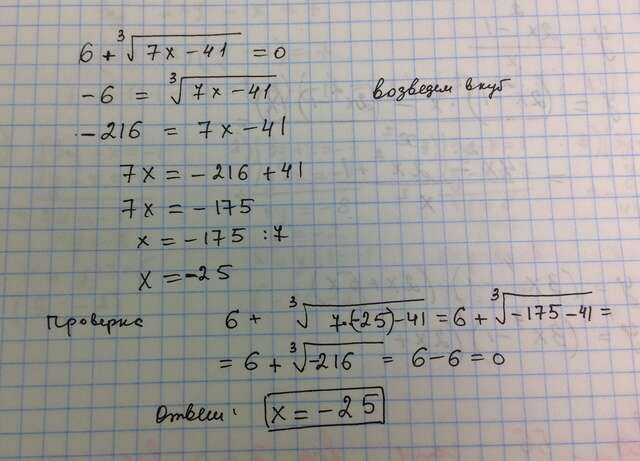 6 + ∛(7x - 41) = 0
-6 = ∛(7x - 41) возведем в куб
-216 = 7x - 41
7x = -216 + 41
7x = -175
x = -175 : 7
x = -25
Проверка 6 + ∛(7·(-25) - 41) = 6 + ∛(-175 - 41) =
= 6 + ∛(-216) = 6 - 6 = 0
Ответ: x = -25